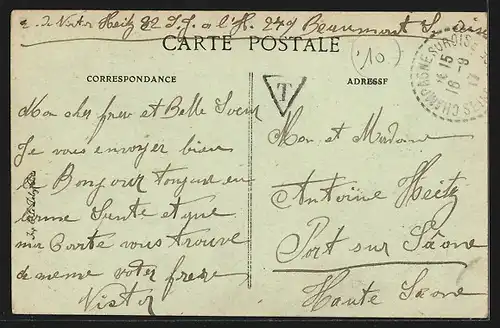 Victor Heitz 82 I.J. à l'H. 279 Beaumont S. Oise
CARTE POSTALE
(10)
CORRESPONDANCE
ADRESSE
T
CHAMPAGNE SUR OISE
15
16 - 9
17
Mon cher frere et Belle Soeur
Je vous envoyer bien
le Bonjour toujour en
bonne Sante et que
ma Carte vous trouve
de meme voter frere
Victor
Mon et Madame
Antoine Heitz
Port sur Saône
Haute Saone